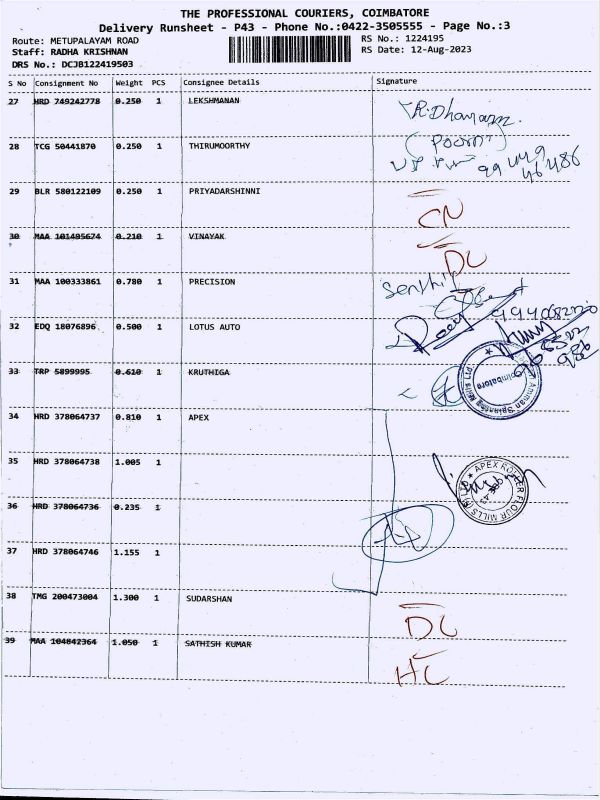 THE PROFESSIONAL COURIERS, COIMBATORE
Delivery Runsheet - P43 - Phone No.:0422-3505555 - Page No.:3
Route: METUPALAYAM ROAD
Staff: RADHA KRISHNAN
DRS No.: DCJB122419503
RS No.: 1224195
RS Date: 12-Aug-2023
S No Consignment No Weight PCS Consignee Details Signature
27 HRD 749242778 0.250 1 LEKSHMANAN
28 TCG 50441870 0.250 1 THIRUMOORTHY
29 BLR 580122109 0.250 1 PRIYADARSHINNI CN
30 MAA 101495674 0.210 1 VINAYAK DL
31 MAA 100333861 0.780 1 PRECISION Senthil
32 EDQ 18076896 0.500 1 LOTUS AUTO
33 TRP 5899995 0.610 1 KRUTHIGA
34 HRD 378064737 0.810 1 APEX
35 HRD 378064738 1.005 1 APEX ROLLER FLOUR MILLS (P) LTD
36 HRD 378064736 0.235 1
37 HRD 378064746 1.155 1
38 TMG 200473004 1.300 1 SUDARSHAN DL
39 MAA 104842364 1.050 1 SATHISH KUMAR HC